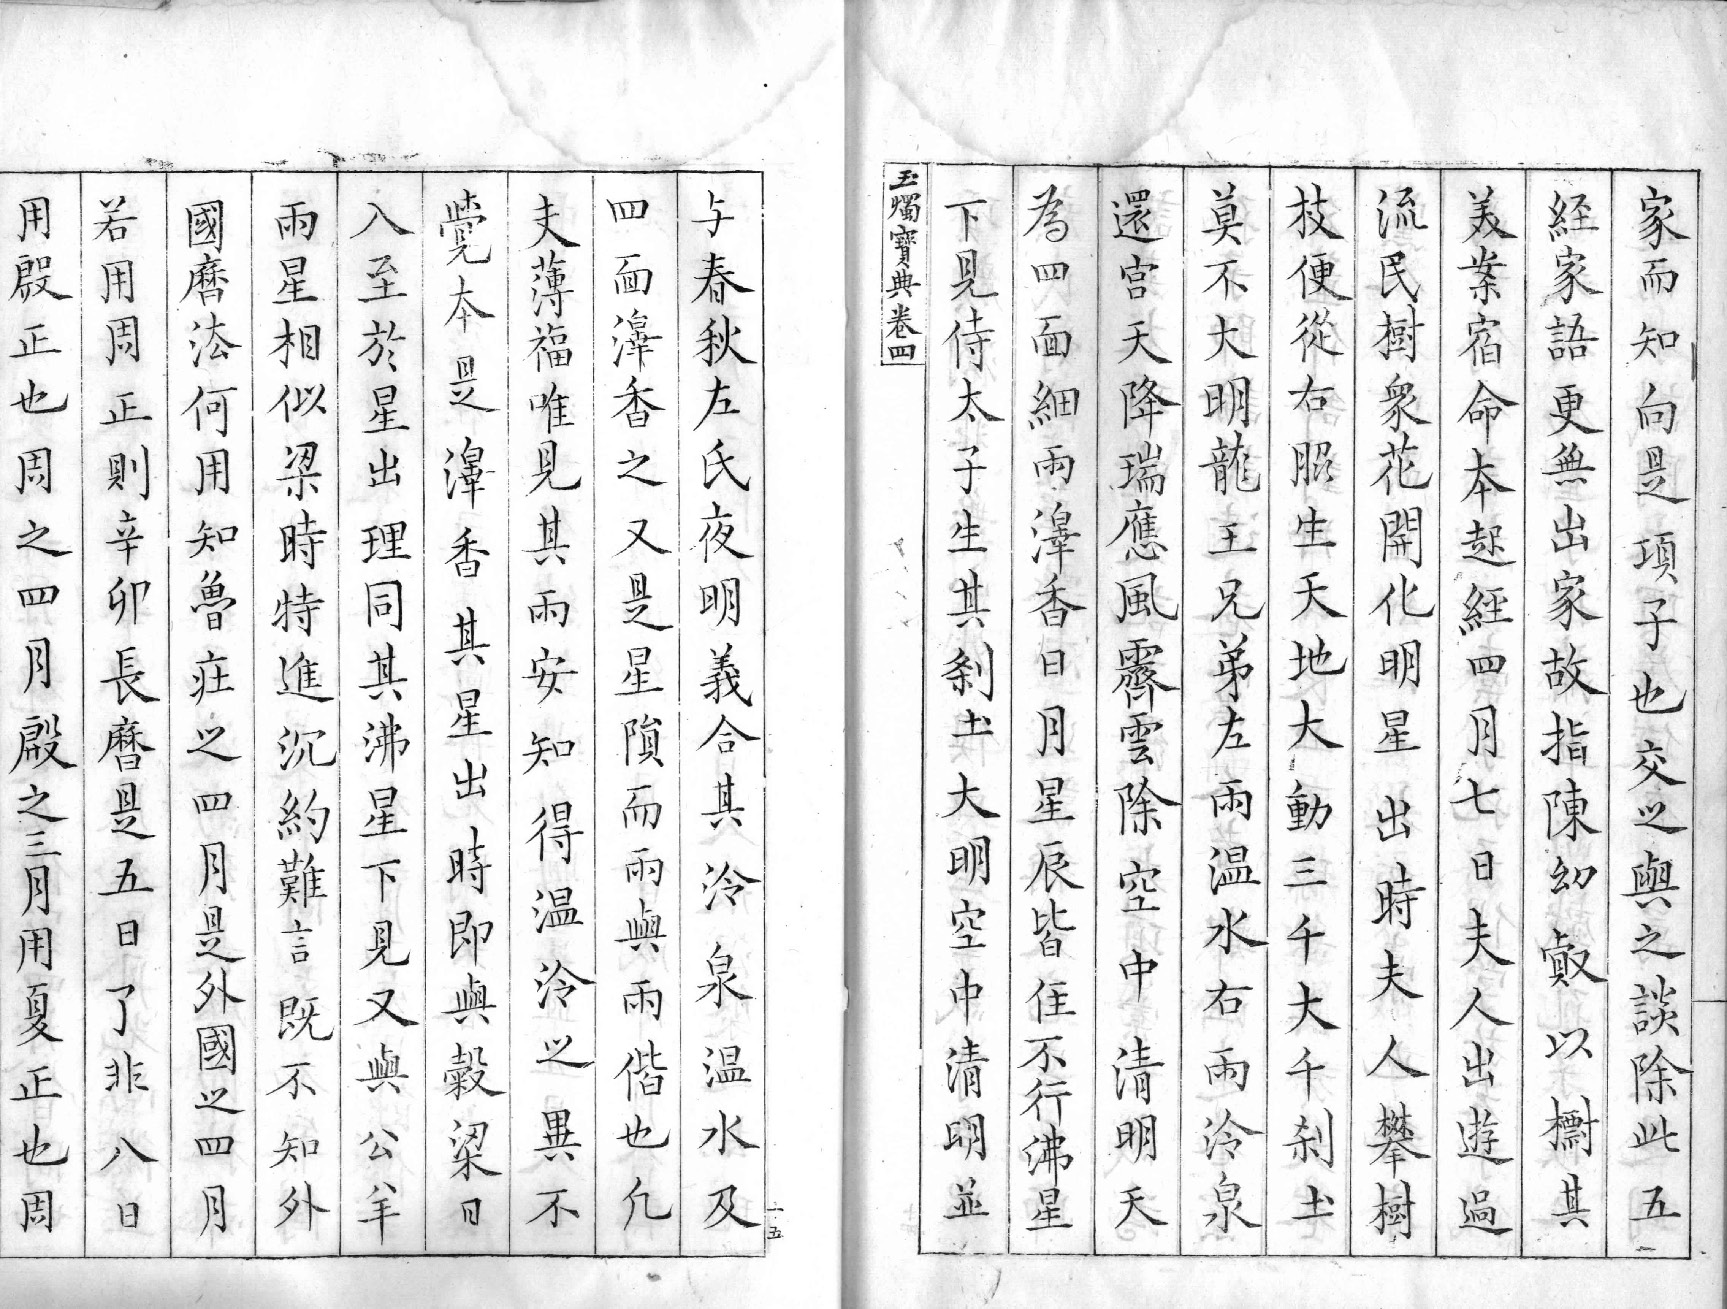 家而知向是項子也交㕥與之談除此五
経家語更無出家故指陳幼㪟以樹其
美案宿命本起經四月七日夫人出遊過
流民樹衆花開化明星出時夫人攀樹
枝便從右脇生天地大動三千大千刹土
莫不大明龍王兄弟左雨温水右雨泠泉
還宮天降瑞應風霽雲除空中清明天
為四面細雨澤香日月星辰皆住不行沸星
下見侍太子生其刹土大明空中清明並
玉燭寶典卷四
与春秋左氏夜明義合其泠泉温水及
四面澤香之又是星隕而雨與雨偕也凢
夫薄福唯見其雨安知得温泠㕥異不
覺本是澤香其星出時即與穀梁日
入至於星出理同其沸星下見又與公羊
雨星相似梁時特進沉約難言既不知外
國曆法何用知魯莊㕥四月是外國㕥四月
若用周正則辛卯長曆是五日了非八日
用殷正也周之四月殷之三月用夏正也周
十五